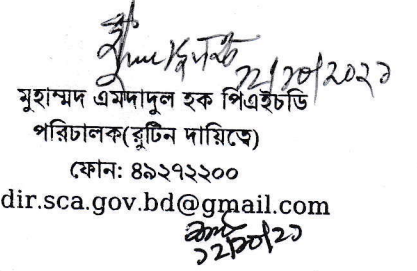 ১২/১০/২০২১
মুহাম্মদ এমদাদুল হক পিএইচডি
পরিচালক(রুটিন দায়িত্বে)
ফোন: ৪৯২৭২২০০
dir.sca.gov.bd@gmail.com
১২/১০/২১